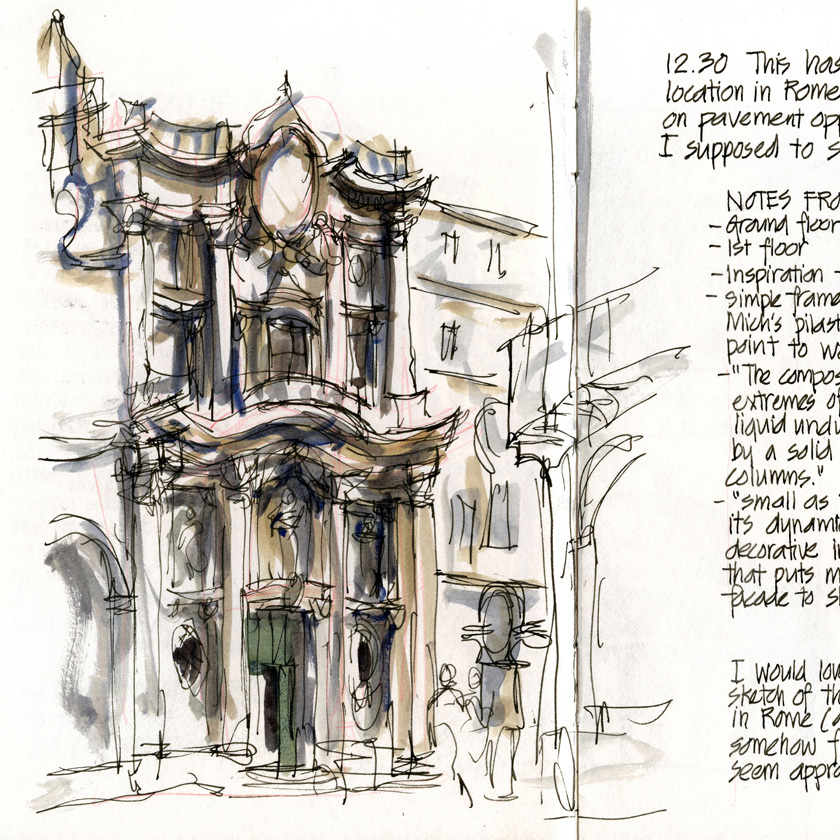 12.30 This has
location in Rome
on pavement opp
I supposed to s
NOTES FRO
- Ground floor
- 1st floor
- Inspiration -
- simple frame
Mich's pilast
point to wo
- "The compos
extremes of
liquid undu
by a solid
columns."
- "small as
its dynami
decorative in
that puts m
facade to sh
I would lov
sketch of th
in Rome (a
somehow f
seem appro